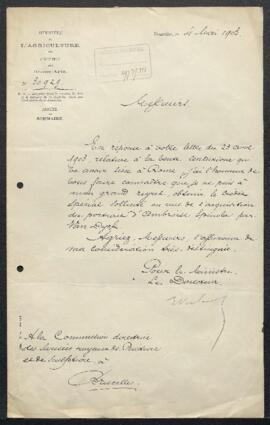 MINISTÈRE
DE
L'AGRICULTURE
Beaux-Arts.
N° 30929
Bruxelles, le 4 1903
Messieurs
En réponse à votre lettre du 23 avril
1903, relative à la vente
qui aura lieu à Rome, j'ai l'honneur de
vous faire connaître que je ne puis à
mon grand regret, obtenir le crédit
spécial sollicité en vue de l'acquisition
du portrait d'Ambroise Spinola par
Van Dyck.
Agréez, Messieurs, l'assurance de
ma considération très distinguée.
Pour le Ministre
Le Directeur
A la Commission directrice
des Musées royaux de Peinture
et de Sculpture à
Bruxelles